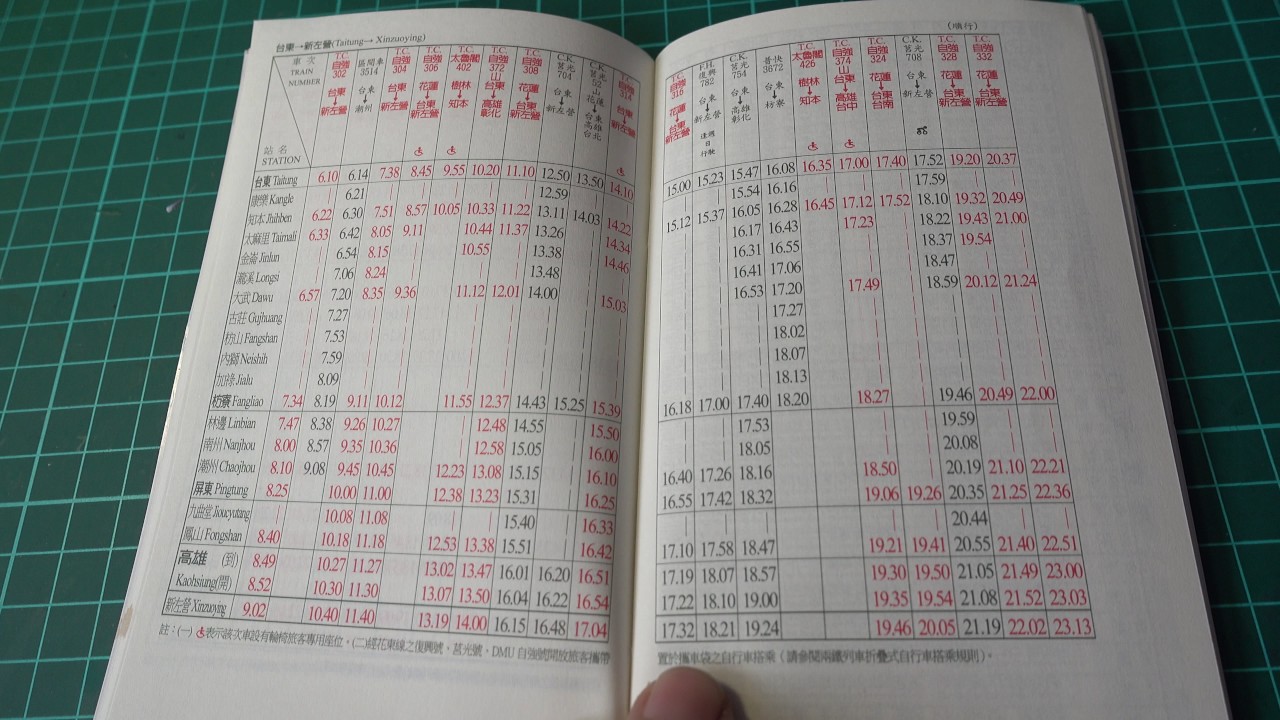 台東→新左營(Taitung→ Xinzuoying)
車次 TRAIN NUMBER
站名 STATION
T.C. 自強 302 台東↓新左營
區間車 3514 台東↓潮州
T.C. 自強 304 台東↓新左營
T.C. 自強 306 花蓮↓台東新左營
T.C. 太魯閣 402 樹林↓知本
T.C. 自強 372 山 台東↓高雄彰化
T.C. 自強 308 花蓮↓台東新左營
C.K. 莒光 704 台東↓新左營
C.K. 莒光 52 山 花蓮↓台東高雄台北
T.C. 自強 314 台東↓新左營
台東 Taitung 6.10 6.14 7.38 8.45 9.55 10.20 11.10 12.50 13.50 14.10
康樂 Kangle 6.21 12.59
知本 Jhihben 6.22 6.30 7.51 8.57 10.05 10.33 11.22 13.11 14.03 14.22
太麻里 Taimali 6.33 6.42 8.05 9.11 10.44 11.37 13.26 14.34
金崙 Jinlun 6.54 8.15 10.55 13.38 14.46
瀧溪 Longsi 7.06 8.24 13.48
大武 Dawu 6.57 7.20 8.35 9.36 11.12 12.01 14.00 15.03
古莊 Gujhuang 7.27
枋山 Fangshan 7.53
內獅 Neishih 7.59
加祿 Jialu 8.09
枋寮 Fangliao 7.34 8.19 9.11 10.12 11.55 12.37 14.43 15.25 15.39
林邊 Linbian 7.47 8.38 9.26 10.27 12.48 14.55 15.50
南州 Nanjhou 8.00 8.57 9.35 10.36 12.58 15.05 16.00
潮州 Chaojhou 8.10 9.08 9.45 10.45 12.23 13.08 15.15 16.10
屏東 Pingtung 8.25 10.00 11.00 12.38 13.23 15.31 16.25
九曲堂 Jioucyutang 10.08 11.08 15.40 16.33
鳳山 Fongshan 8.40 10.18 11.18 12.53 13.38 15.51 16.42
高雄 (到) 8.49 10.27 11.27 13.02 13.47 16.01 16.20 16.51
Kaohsiung(開) 8.52 10.30 11.30 13.07 13.50 16.04 16.22 16.54
新左營 Xinzuoying 9.02 10.40 11.40 13.19 14.00 16.15 16.48 17.04
註：(一) ♿表示該次車設有輪椅旅客專用座位。(二)經花東線之復興號、莒光號、DMU 自強號開放旅客攜帶
(順行)
T.C. 自強 316 花蓮↓台東新左營
F.H. 復興 782 台東↓新左營 逢週日行駛
C.K. 莒光 754 台東↓高雄彰化
普快 3672 台東↓枋寮
T.C. 太魯閣 426 樹林↓知本
T.C. 自強 374 山 台東↓高雄台中
T.C. 自強 324 花蓮↓台東台南
C.K. 莒光 708 台東↓新左營
T.C. 自強 328 花蓮↓台東新左營
T.C. 自強 332 花蓮↓台東新左營
15.00 15.23 15.47 16.08 16.35 17.00 17.40 17.52 19.20 20.37
15.54 16.16 17.59
15.12 15.37 16.05 16.28 16.45 17.12 17.52 18.10 19.32 20.49
16.17 16.43 17.23 18.22 19.43 21.00
16.31 16.55 18.37 19.54
16.41 17.06 18.47
16.53 17.20 17.49 18.59 20.12 21.24
17.27
18.02
18.07
18.13
16.18 17.00 17.40 18.20 18.27 19.46 20.49 22.00
17.53 19.59
18.05 20.08
16.40 17.26 18.16 18.50 20.19 21.10 22.21
16.55 17.42 18.32 19.06 19.26 20.35 21.25 22.36
20.44
17.10 17.58 18.47 19.21 19.41 20.55 21.40 22.51
17.19 18.07 18.57 19.30 19.50 21.05 21.49 23.00
17.22 18.10 19.00 19.35 19.54 21.08 21.52 23.03
17.32 18.21 19.24 19.46 20.05 21.19 22.02 23.13
置於攜車袋之自行車搭乘(請參閱兩鐵列車折疊式自行車搭乘規則)。